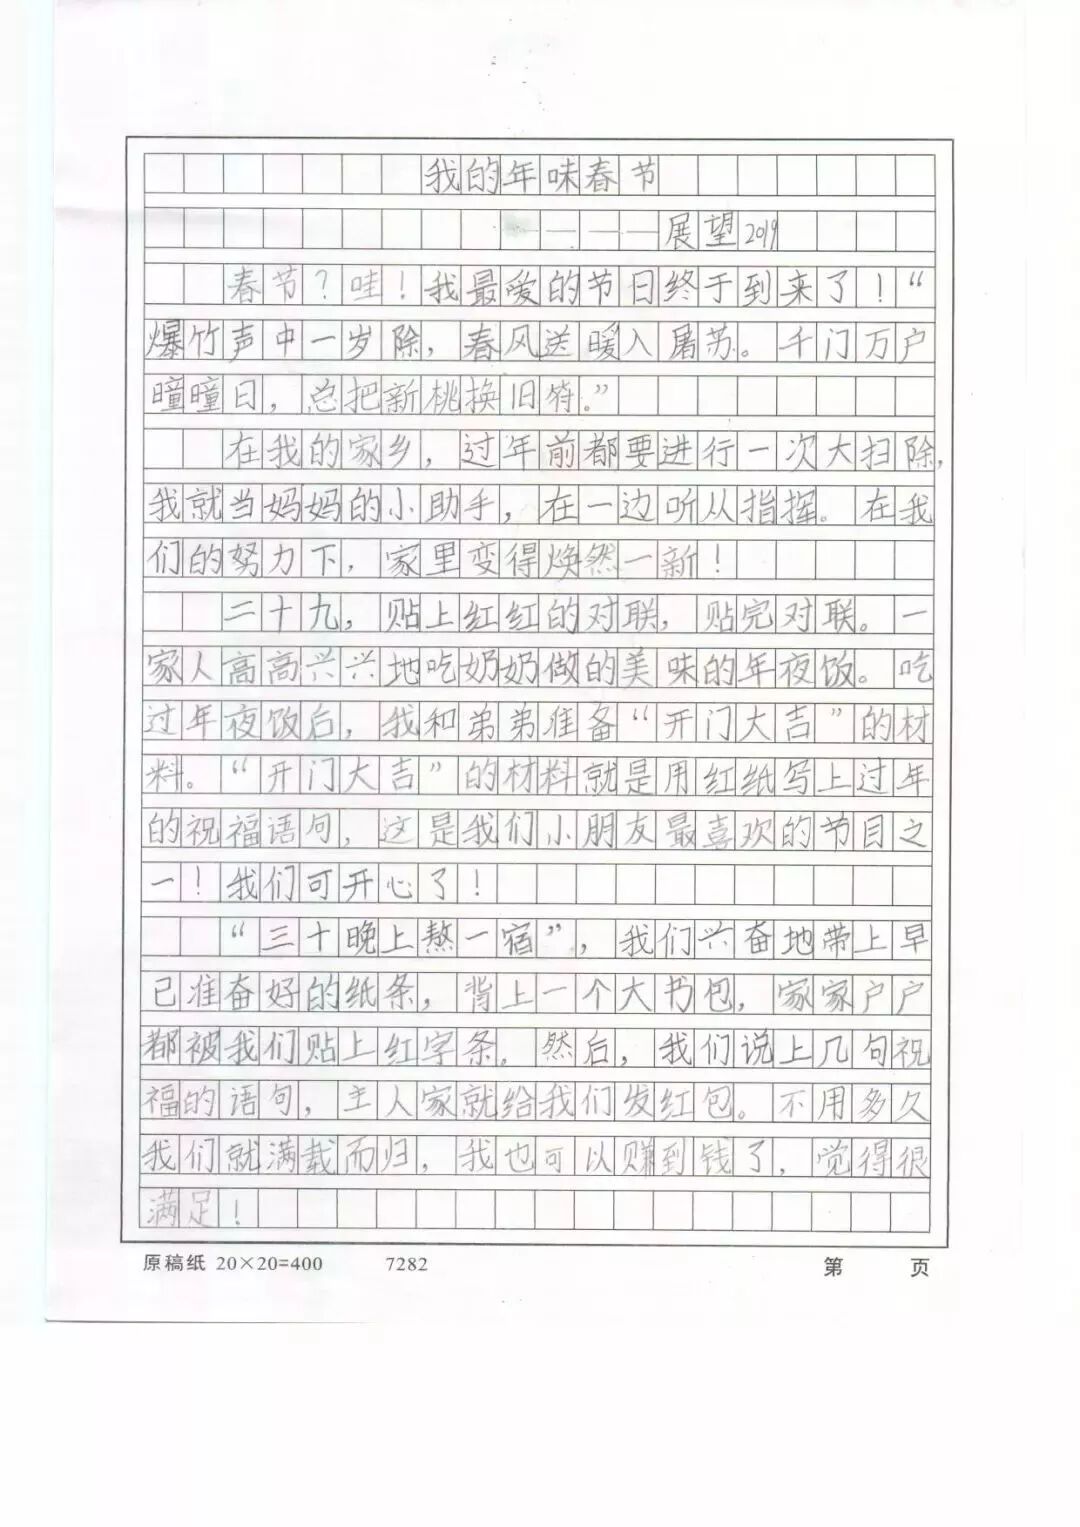 我的年味春节
————展望2019
春节？哇！我最爱的节日终于到来了！“
爆竹声中一岁除，春风送暖入屠苏。千门万户
曈曈日，总把新桃换旧符。”
在我的家乡，过年前都要进行一次大扫除，
我就当妈妈的小助手，在一边听从指挥。在我
们的努力下，家里变得焕然一新！
二十九，贴上红红的对联，贴完对联。一
家人高高兴兴地吃奶奶做的美味的年夜饭。吃
过年夜饭后，我和弟弟准备“开门大吉”的材
料。“开门大吉”的材料就是用红纸写上过年
的祝福语句，这是我们小朋友最喜欢的节目之
一！我们可开心了！
“三十晚上熬一宿”，我们兴奋地带上早
已准奋好的纸条，背上一个大书包，家家户户
都被我们贴上红字条。然后，我们说上几句祝
福的语句，主人家就给我们发红包。不用多久
我们就满载而归，我也可以赚到钱了，觉得很
满足！
原稿纸 20×20=400 7282 第 页